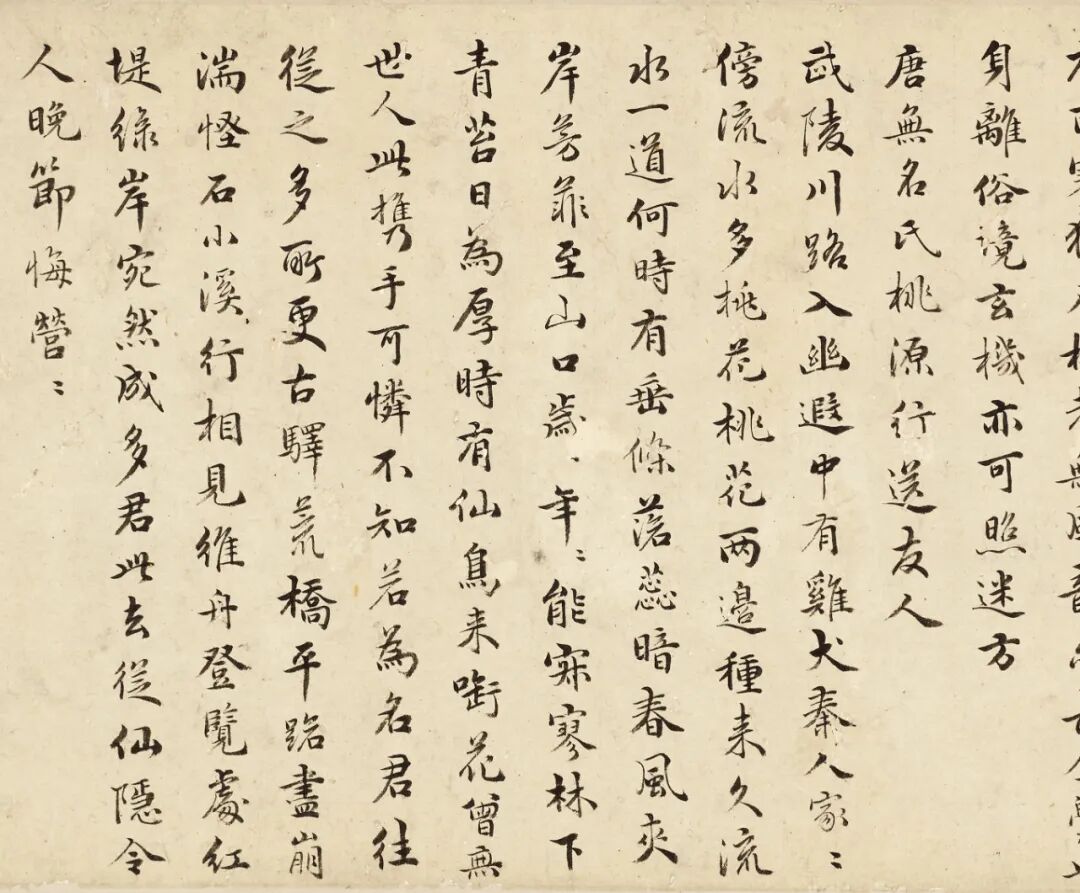 身離俗境玄機亦可照迷方
唐無名氏桃源行送友人
武陵川路入幽遐中有雞犬秦人家〻
傍流水多桃花桃花兩邊種来久流
水一道何時有垂條落蕊暗春風夾
岸芳菲至山口歲〻年〻能寂寥林下
青苔日為厚時有仙鳥来銜花曾無
世人此携手可憐不知若為名君往
從之多所更古驛荒橋平路盡崩
湍怪石小溪行相見維舟登覽處紅
堤綠岸宛然成多君此去從仙隱令
人晚節悔營〻